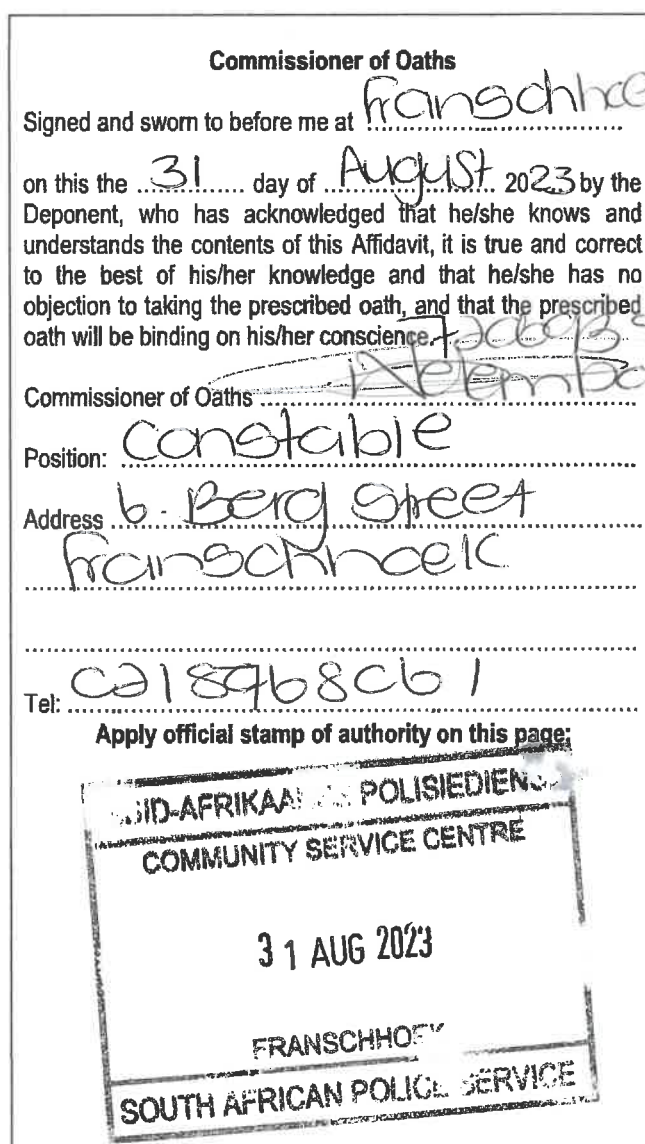 Commissioner of Oaths
Signed and sworn to before me at Franschhoe
on this the 31 day of August 2023 by the
Deponent, who has acknowledged that he/she knows and
understands the contents of this Affidavit, it is true and correct
to the best of his/her knowledge and that he/she has no
objection to taking the prescribed oath, and that the prescribed
oath will be binding on his/her conscience.
Commissioner of Oaths
Position: Constable
Address 6. Berg Street
Franschhoek
Tel: 0218768061
Apply official stamp of authority on this page:
POLISIEDIENS
COMMUNITY SERVICE CENTRE
31 AUG 2023
FRANSCHHOEK
SOUTH AFRICAN POLICE SERVICE